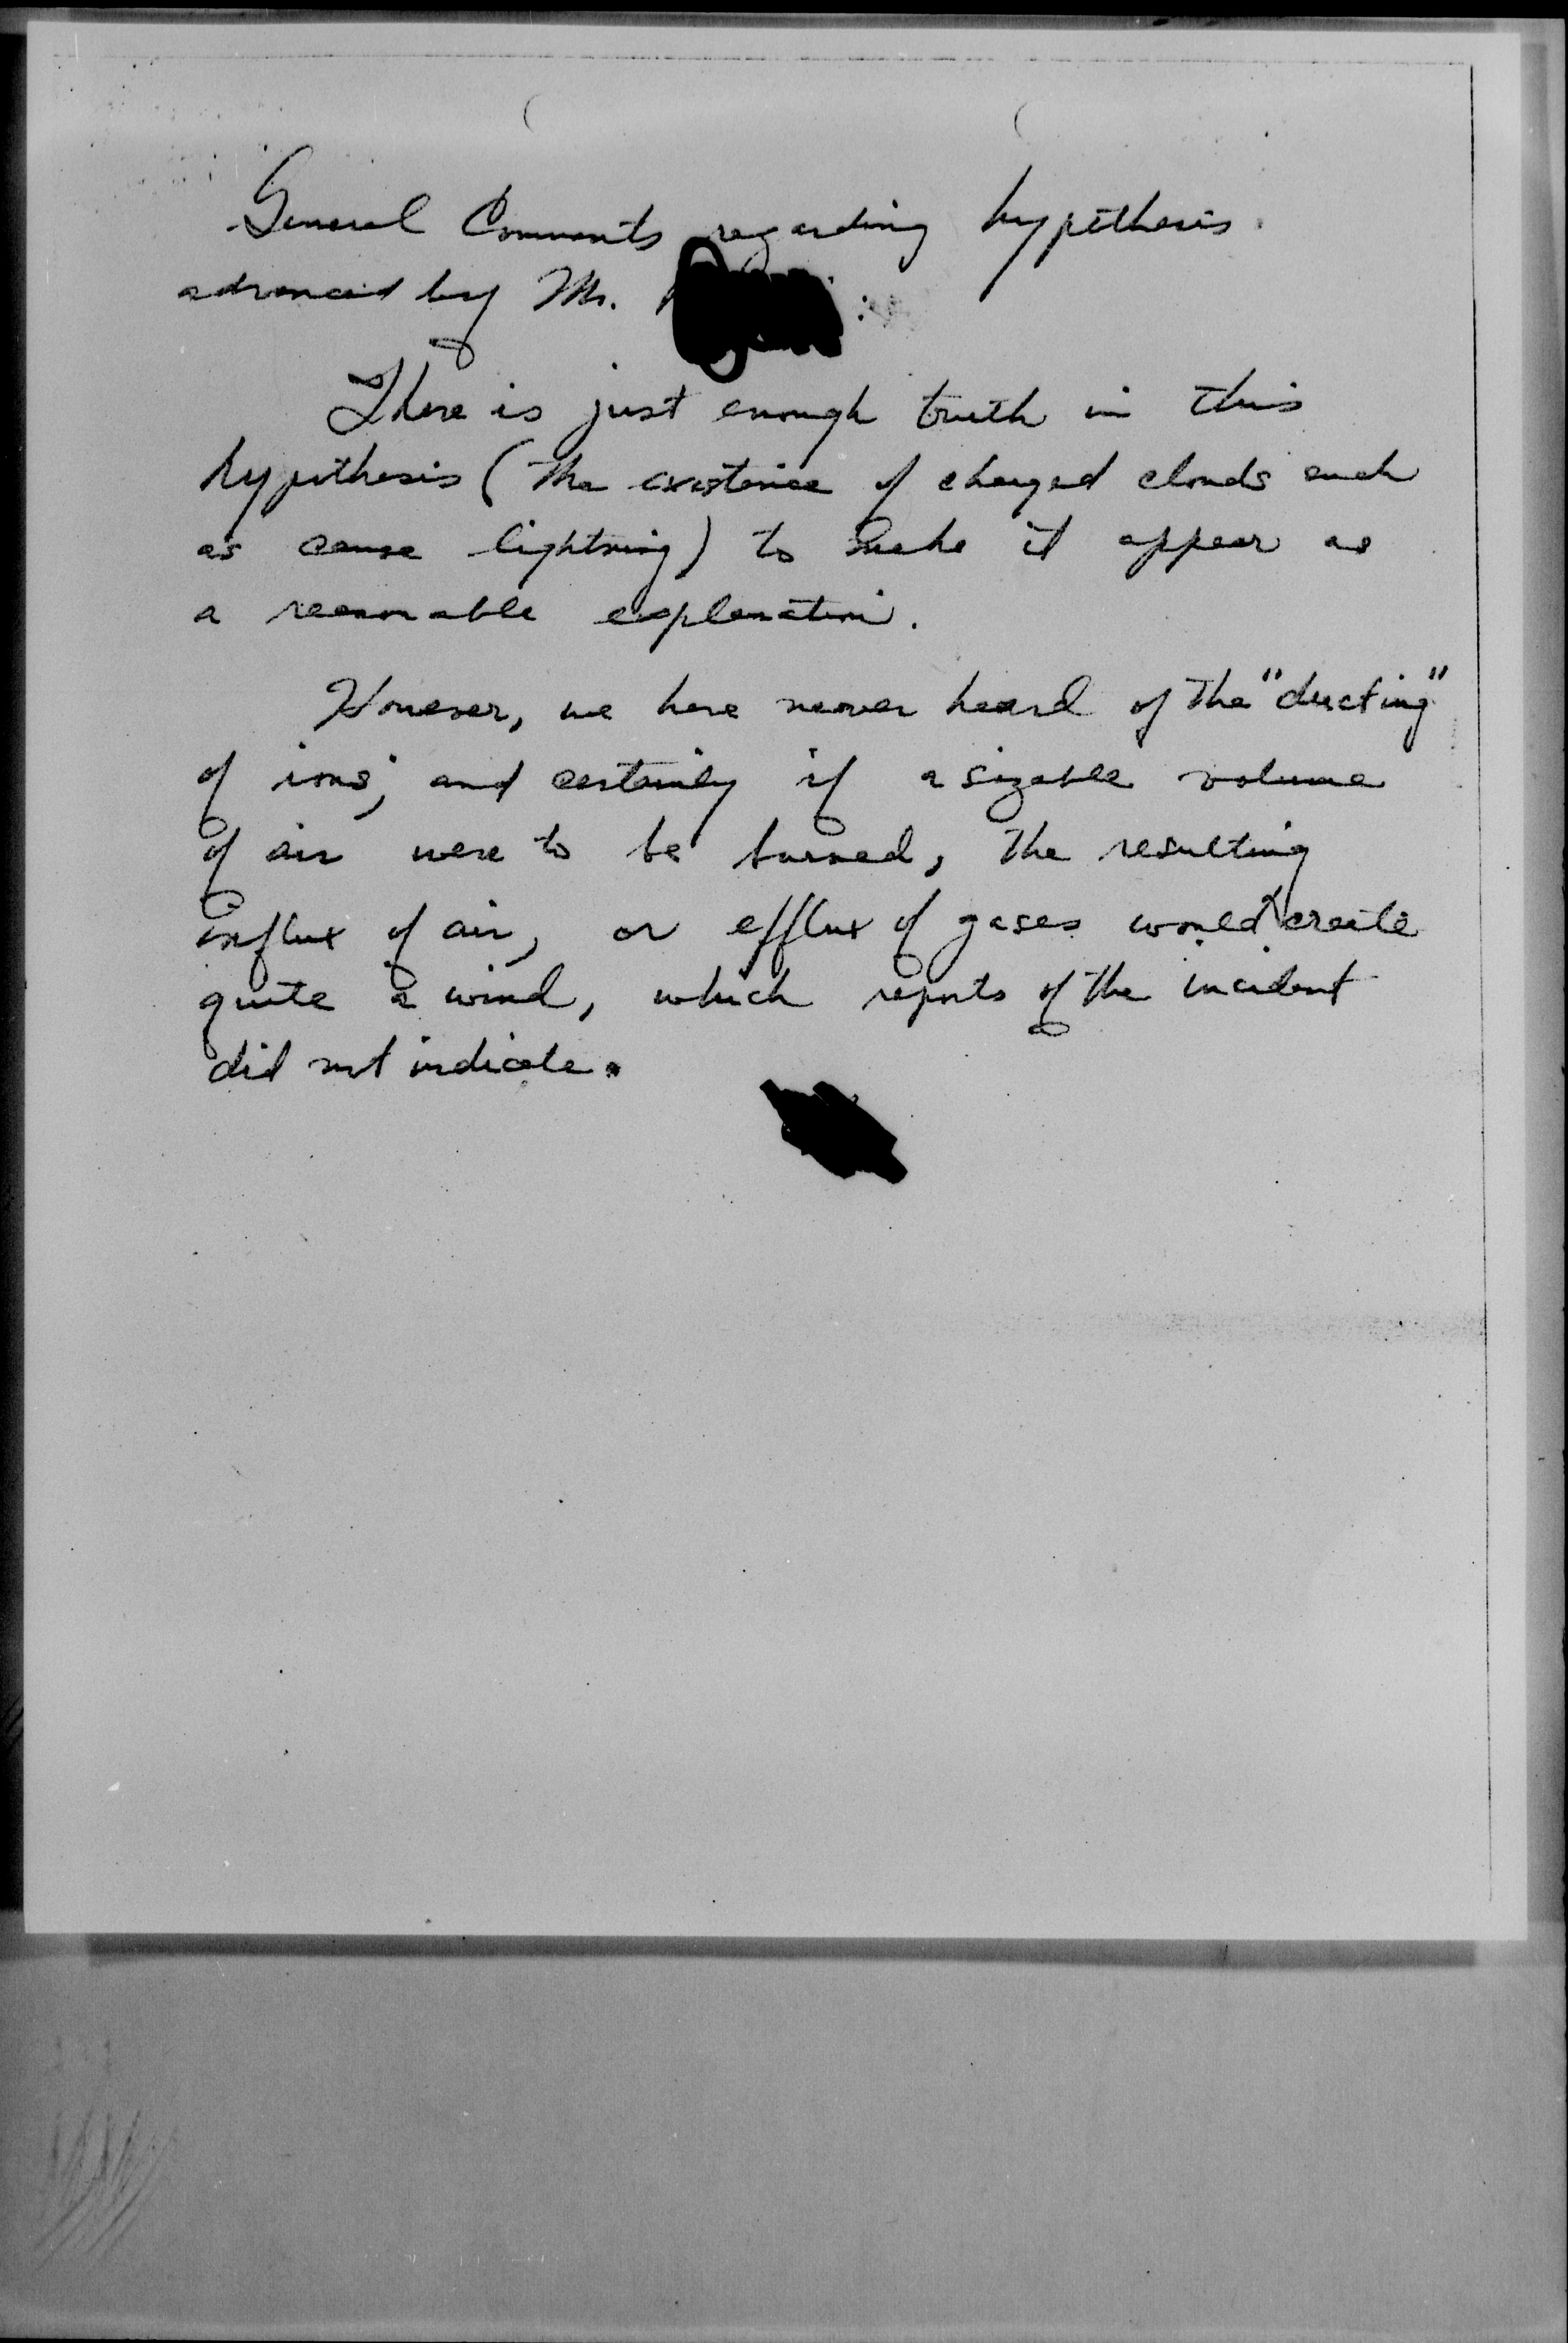 General Comments regarding hypothesis
advanced by Mr. :
There is just enough truth in this
hypothesis (the existence of charged clouds such
as cause lightning) to make it appear as
a reasonable explanation.
However, we have never heard of the "ducting"
of ions, and certainly if a sizable volume
of air were to be burned, the resulting
influx of air, or efflux of gases would create
quite a wind, which reports of the incident
did not indicate.